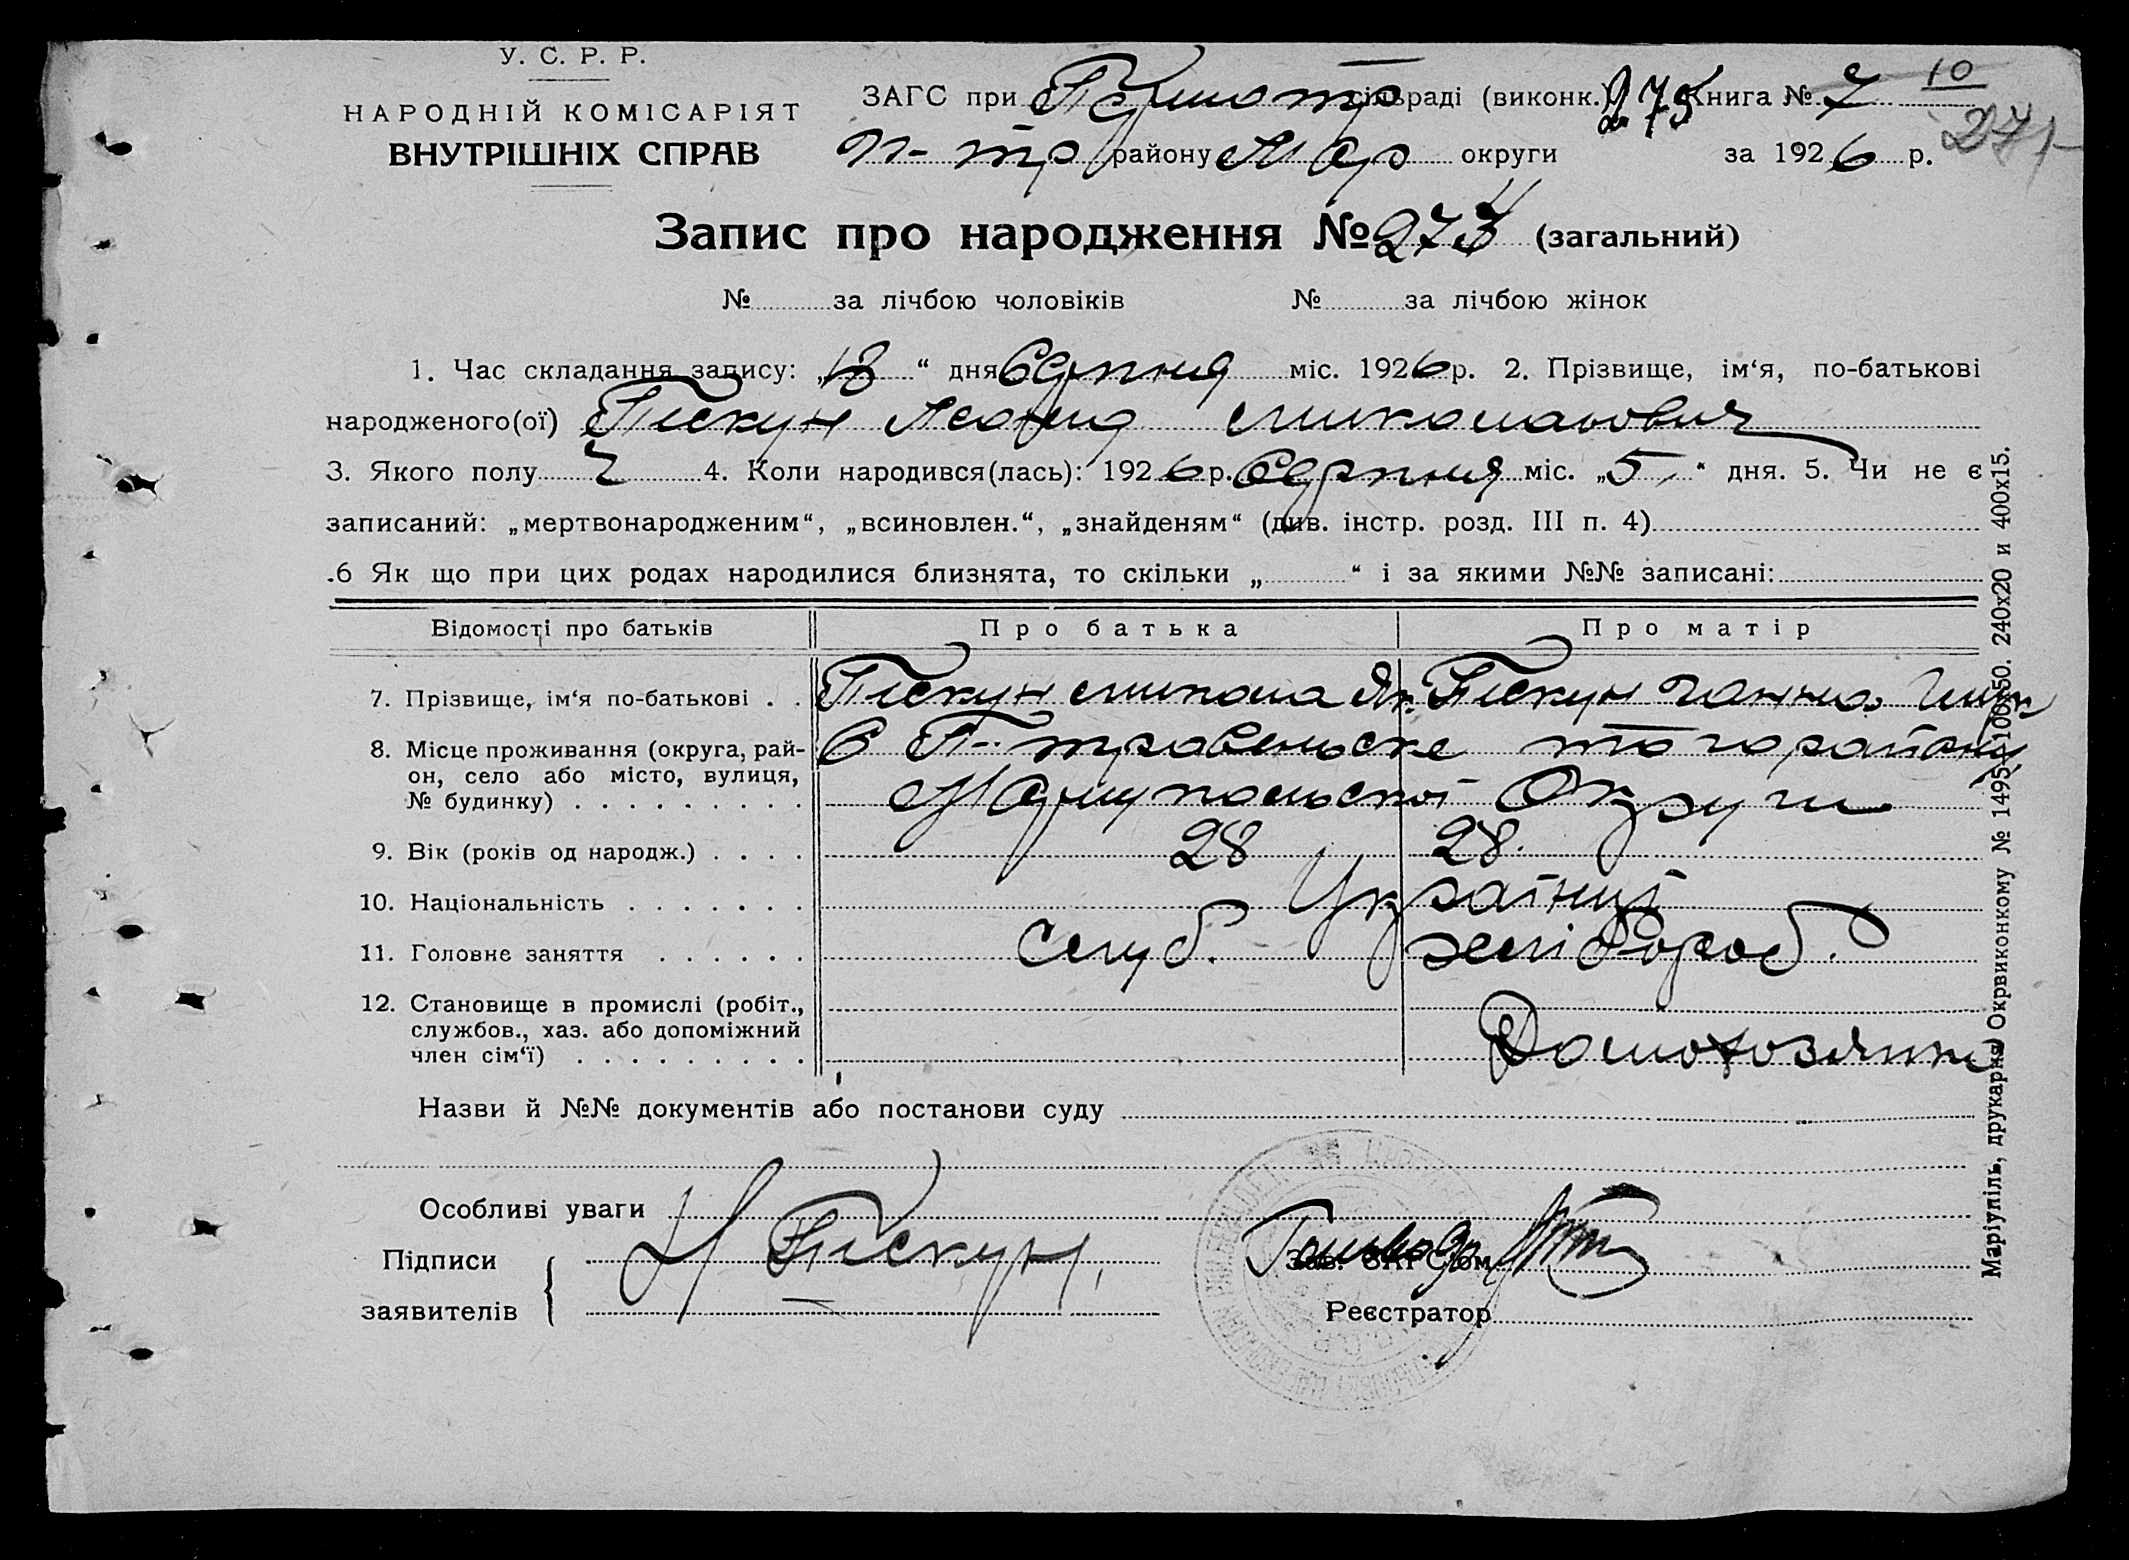 У. С. Р. Р.
НАРОДНІЙ КОМІСАРІЯТ
ВНУТРІШНІХ СПРАВ
ЗАГС при сільраді (виконк.) 275 Книга № 7 10
П-тр району Мар округи за 1926 р. 271
Запис про народження № 273 (загальний)
№ за лічбою чоловіків № за лічбою жінок
1. Час складання запису: „18“ дня Серпня міс. 1926 р. 2. Прізвище, ім‘я, по-батькові
народженого(ої) Піскун Леонид Миколайович
3. Якого полу Ч 4. Коли народився(лась): 1926 р. Серпня міс. „5“ дня. 5. Чи не є
записаний: „мертвонародженим“, „всиновлен.“, „знайденям“ (див. інстр. розд. III п. 4)
.6 Як що при цих родах народилися близнята, то скільки „ “ і за якими №№ записані:
Відомості про батьків Про батька Про матір
7. Прізвище, ім‘я по-батькові . . Піскун Микола Як. Піскун Ганна
8. Місце проживання (округа, рай- с того району
он, село або місто, вулиця,
№ будинку) . . . . . . . . . . Маріупольскої Округи
9. Вік (років од народж.) . . . . 28 28.
10. Національність . . . . . . . Українці
11. Головне заняття . . . . . . служб. хліброб.
12. Становище в промислі (робіт.,
службов., хаз. або допоміжний
член сім‘ї) . . . . . . . . . Домохозяйка
Назви й №№ документів або постанови суду
Особливі уваги
Підписи Н Піскун Зав. ЗАГС‘ом
заявителів Реєстратор
Маріупіль, друкарня Окрвиконкому № 1495-100х50. 240х20 и 400х15.